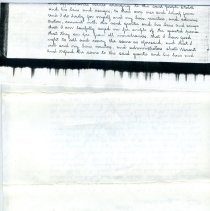 the said grantee
and his heirs and assigns, to their own use and behoof forever
and I do hereby for myself and my heirs, executors and adminis-
trators, covenant with the said grantee and his heirs and assigns
that I am lawfully seized in fee simple of the granted premises
that they are free from all incumbrances, that I have good
right to sell and convey the same as aforesaid, and that I
will and my heirs, executors, and administrators shall warrant
and defend the same to the said grantee and his heirs and